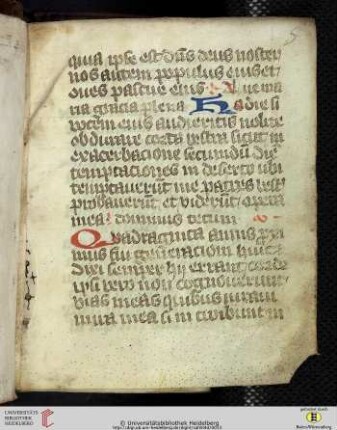 5
quia ipse est dn̄s deus noster
nos autem populus eius et
oues pascue eius Aue ma
ria gracia plena Hodie si
vocem eius audieritis nolite
obdurare corda vestra sicut in
exacerbacione secundū die
temptaciones in deserto ubi
temptauerūt me patres vest
probauerūt et viderūt opera
mea dominus tecum
Quadraginta annis
mus fui generacioni huic
dixi semper hij errant corde
ipsi vero non cognouerunt
vias meas quibus iuraui
in ira mea si introibunt in
UNIVERSITÄTS-
BIBLIOTHEK
HEIDELBERG
© Universitätsbibliothek Heidelberg
gefördert durch
Baden-Württemberg